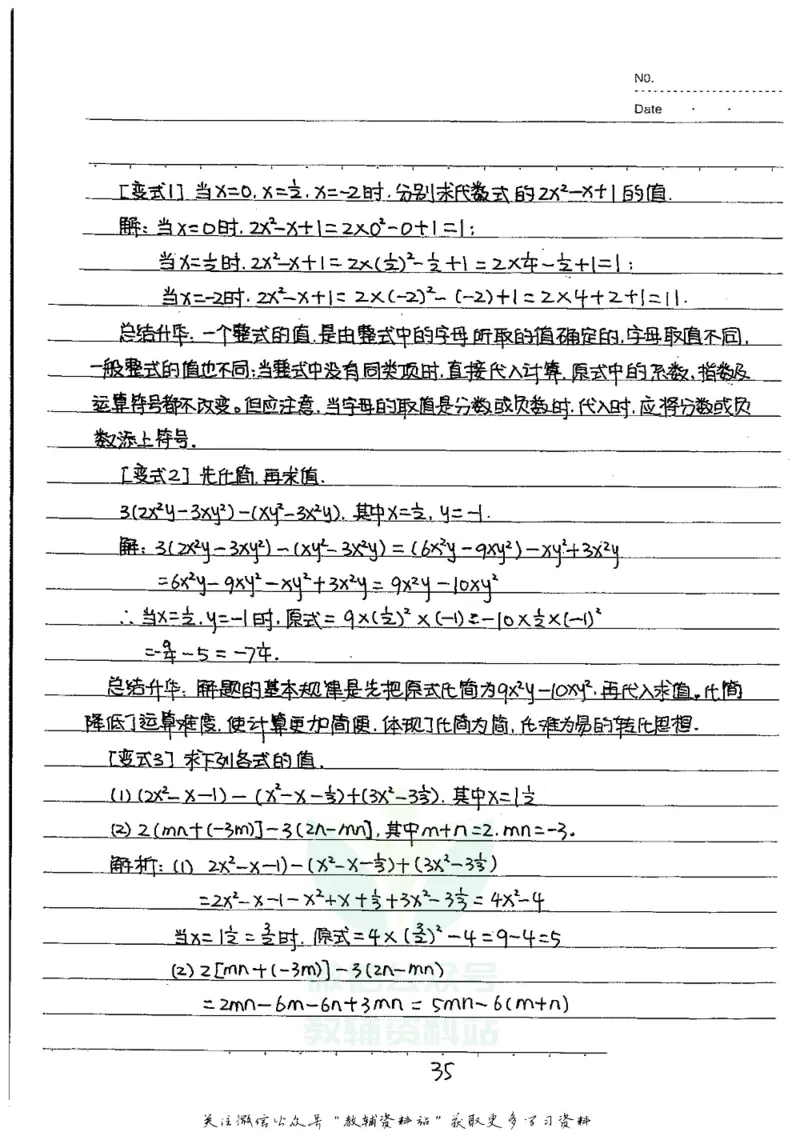 NO.
Date
[变式1] 当x=0, x=½, x=-2时, 分别求代数式的2x²-x+1的值.
解: 当x=0时, 2x²-x+1=2×0²-0+1=1;
当x=½时, 2x²-x+1=2×(½)²-½+1=2×¼-½+1=1;
当x=-2时, 2x²-x+1=2×(-2)²-(-2)+1=2×4+2+1=11.
总结升华: 一个整式的值, 是由整式中的字母所取的值确定的, 字母取值不同,
一般整式的值也不同; 当整式中没有同类项时, 直接代入计算, 原式中的系数, 指数及
运算符号都不改变。但应注意, 当字母的取值是分数或负数时, 代入时, 应将分数或负
数添上符号.
[变式2] 先化简, 再求值.
3(2x²y-3xy²)-(xy²-3x²y), 其中x=½, y=-1.
解: 3(2x²y-3xy²)-(xy²-3x²y)=(6x²y-9xy²)-xy²+3x²y
=6x²y-9xy²-xy²+3x²y=9x²y-10xy²
∴当x=½, y=-1时, 原式=9×(½)²×(-1)=-10×½×(-1)²
=-9/4-5=-7¼.
总结升华: 解题的基本规律是先把原式化简为9x²y-10xy², 再代入求值。化简
降低了运算难度, 使计算更加简便, 体现了化简为简, 化难为易的转化思想.
[变式3] 求下列各式的值.
(1) (2x²-x-1)-(x²-x-⅓)+(3x²-3⅓), 其中x=1½
(2) 2(mn+(-3m)]-3(2n-mn], 其中m+n=2, mn=-3。
解析: (1) 2x²-x-1)-(x²-x-⅓)+(3x²-3⅓)
=2x²-x-1-x²+x+⅓+3x²-3⅓=4x²-4
当x=1½=3/2时, 原式=4×(3/2)²-4=9-4=5
(2) 2[mn+(-3m)]-3(2n-mn)
=2mn-6m-6n+3mn=5mn-6(m+n)
微信公众号
教辅资料站
35
关注微信公众号"教辅资料站"获取更多学习资料